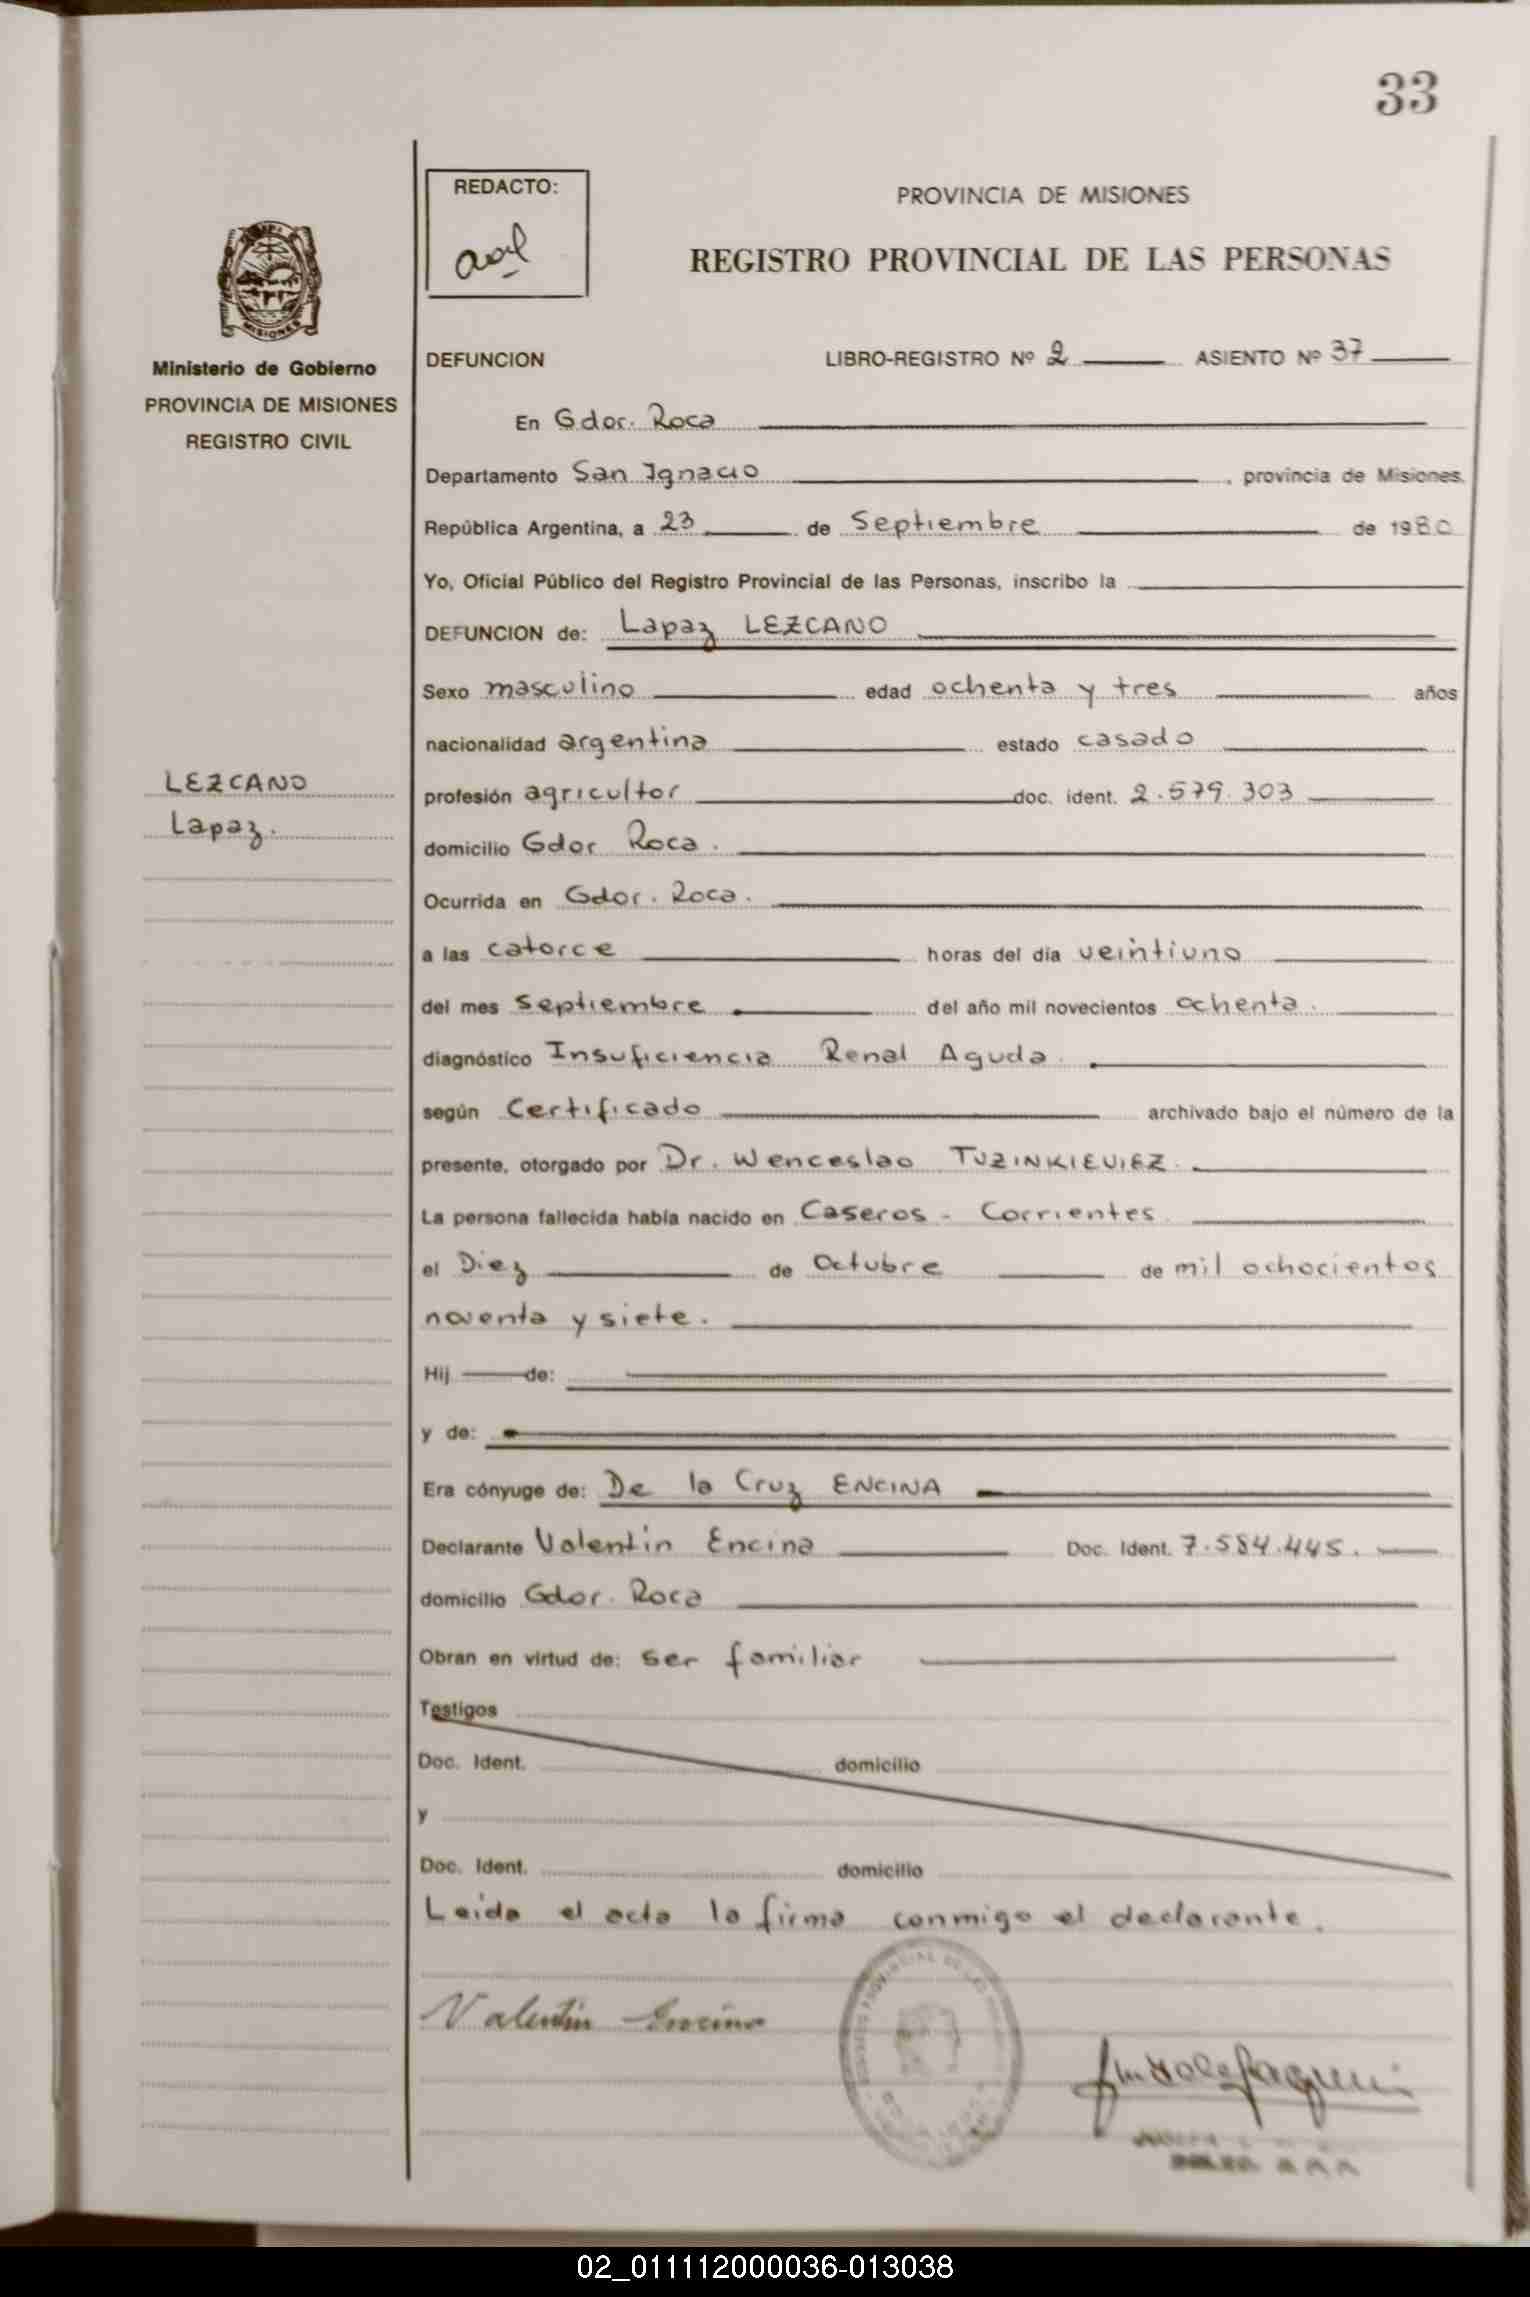 33
REDACTO:
PROVINCIA DE MISIONES
REGISTRO PROVINCIAL DE LAS PERSONAS
MISIONES
Ministerio de Gobierno
PROVINCIA DE MISIONES
REGISTRO CIVIL
DEFUNCION LIBRO-REGISTRO Nº 2 ASIENTO Nº 37
En Gdor. Roca
Departamento San Ignacio, provincia de Misiones,
República Argentina, a 23 de Septiembre de 1980
Yo, Oficial Público del Registro Provincial de las Personas, inscribo la
DEFUNCION de: Lapaz LEZCANO
Sexo masculino edad ochenta y tres años
nacionalidad argentina estado casado
LEZCANO
Lapaz.
profesión agricultor doc. ident. 2.579.303
domicilio Gdor Roca.
Ocurrida en Gdor. Roca.
a las catorce horas del día veintiuno
del mes Septiembre del año mil novecientos ochenta.
diagnóstico Insuficiencia Renal Aguda.
según Certificado archivado bajo el número de la
presente, otorgado por Dr. Wenceslao TUZINKIEVIEZ.
La persona fallecida había nacido en Caseros - Corrientes
el Diez de Octubre de mil ochocientos
noventa y siete.
Hij de:
y de:
Era cónyuge de: De la Cruz ENCINA
Declarante Valentin Encina Doc. Ident. 7.584.445.
domicilio Gdor. Roca
Obran en virtud de: ser familiar
Testigos
Doc. Ident. domicilio
y
Doc. Ident. domicilio
Leida el acta la firma conmigo el declarante.
Valentin Encina
02_011112000036-013038